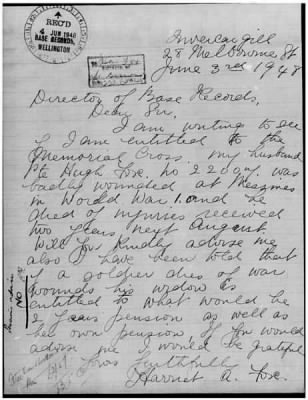 REC'D
4 JUN 1948
BASE RECORDS,
WELLINGTON
Invercargill
28 Melbourne St
June 3rd 1948
Director of Base Records,
Dear Sir,
I am writing to see
if I am entitled to the
Memorial Cross. my husband
Pte Hugh Fox. No was
badly wounded at Messines
in World War 1. and he
died of injuries received
two years next August.
Will you kindly advise me
also I have been told that
if a soldier dies of war
wounds his widow is
entitled to what would be
2 years pension as well as
her own pension If you would
advise me I would be grateful
Yours faithfully
Harriet A. Fox.
NO